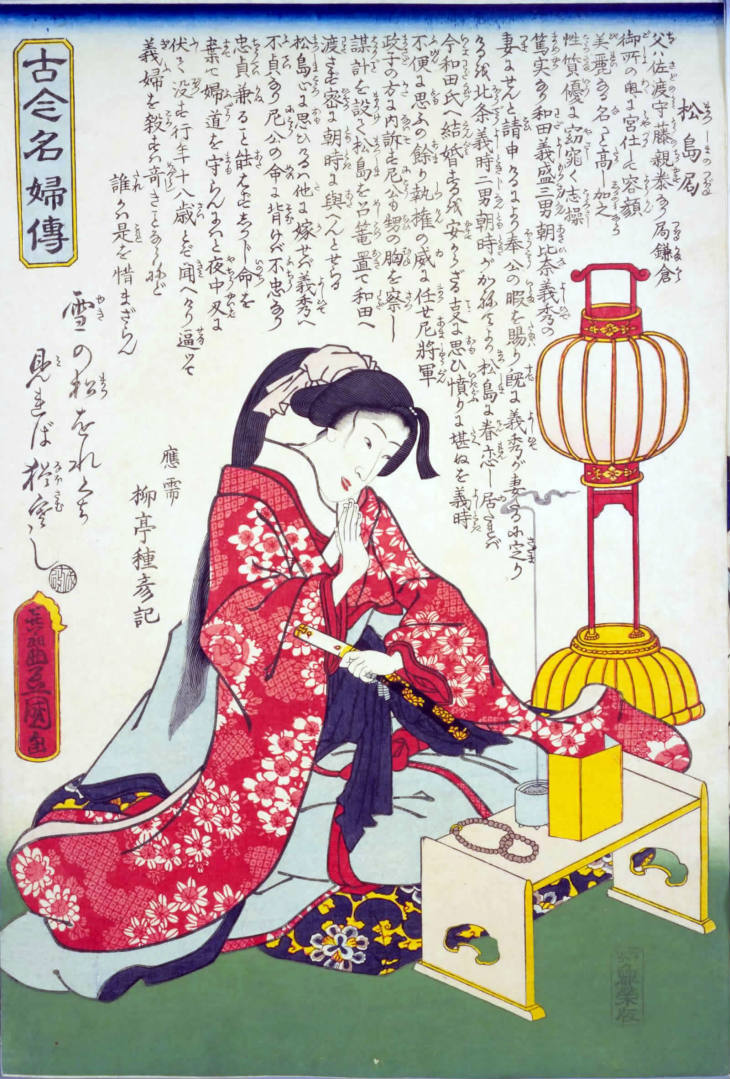 古今名婦傳
松島局
父ハ佐渡守藤親泰なり局鎌倉
御所の奥に宮仕して容顔
美麗なる名を高し加之
性質優に窈窕く志操
篤実なり和田義盛三男朝比奈義秀の
妻にせんと請申けるにより奉公の暇を賜り既に義秀が妻なるに定り
けるを北条義時二男朝時がかねてより松島に眷恋し居たれバ
今和田氏へ結婚するを安からざる事に思ひ憤りに堪ぬを義時
不便に思ふの餘り執権の威に任せ尼將軍
政子の方に内訴す尼公も甥の胸を察し
謀計を設て松島を召篭置て和田へ
渡さず密に朝時に與へんとせらる
松島心に思ひけるハ他に嫁せバ義秀へ
不貞なり尼公の命に背けバ不忠なり
忠貞兼ること能はずとて命を
棄て婦道を守らんにハと夜中刃に
伏て没す行年十八歳とぞ聞へけり逼て
義婦を殺すハ奇きことならめど
誰かハ是を惜まざらん
雪の松をれ口
見れば猶寒し
應需
柳亭種彦記
豊国画